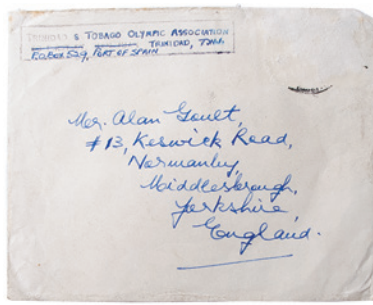 TRINIDAD & TOBAGO OLYMPIC ASSOCIATION
TRINIDAD, T.W.I.
P.O. BOX 529, PORT OF SPAIN
Mr. Alan Goult,
#13, Keswick Road,
Normanby,
Middlesbrough,
Yorkshire,
England.